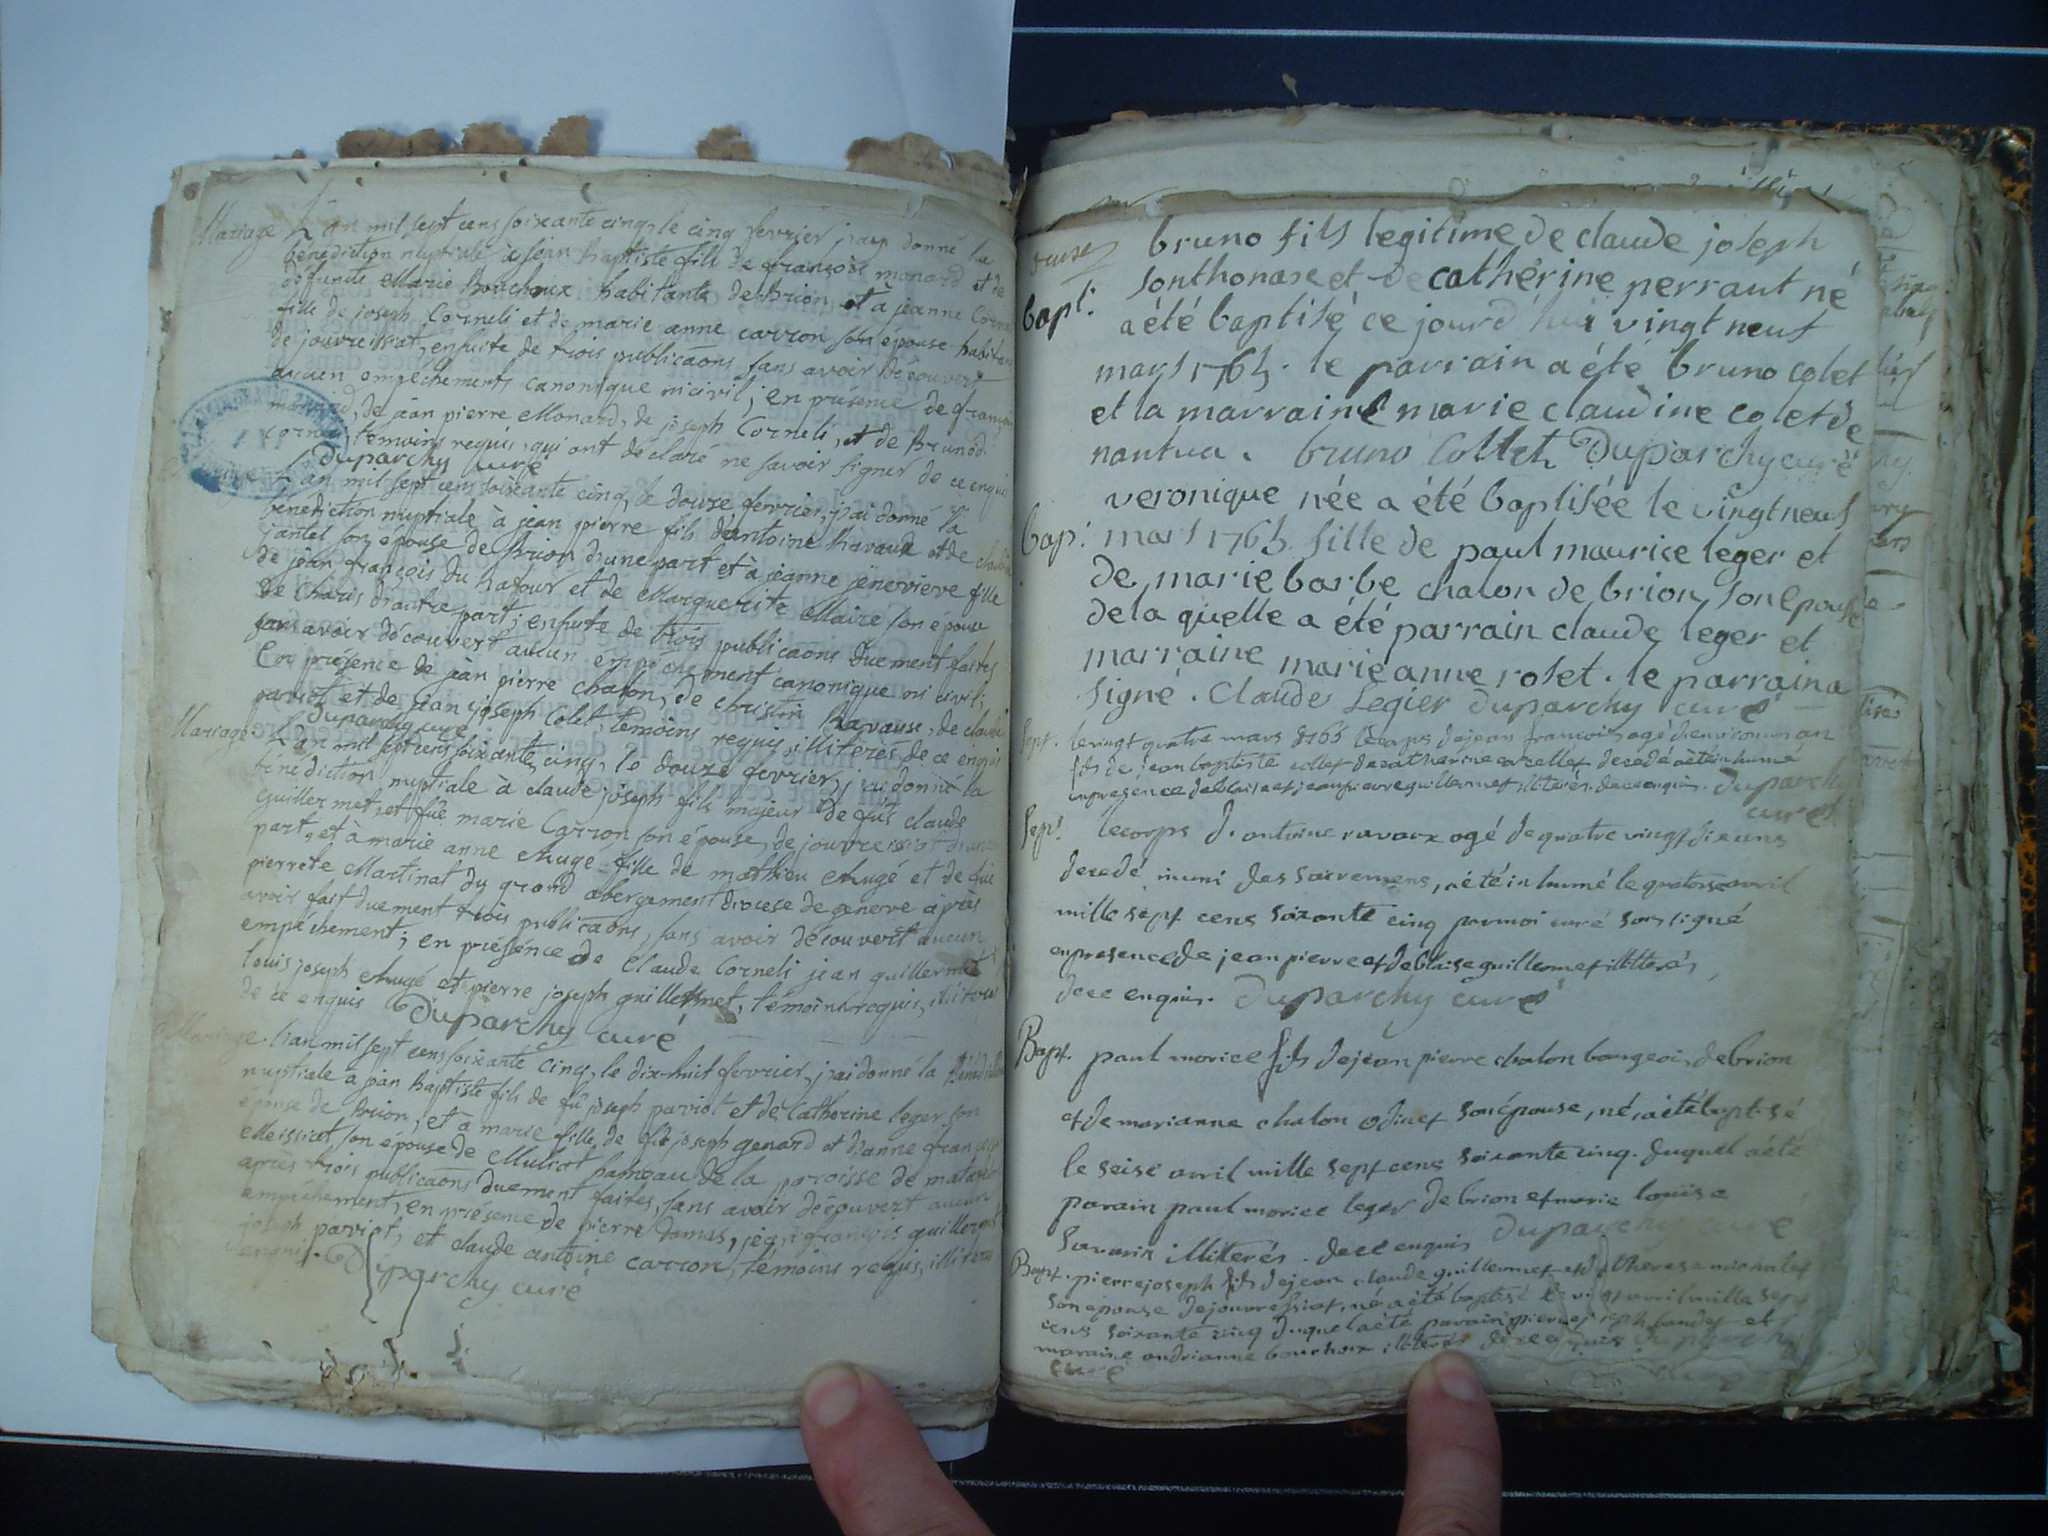 Mariage L'an mil sept cens soixante cinq, le cinq fevrier j'ay donné la
bénédiction nuptiale à jean baptiste fils de françois monard et de
défunte Marie Bouchoux habitants de Brion et à jeanne Corne
fille de joseph Corneli et de marie anne carron son épouse habitan
de jouvreissiat, ensuite de trois publicaõns sans avoir découvert
aucun empéchements canonique ni civil; en présence de françois
monard, de jean pierre Monard, de joseph Corneli, et de Bruno
temoins requis, qui ont déclaré ne savoir signer de ce enquis
Duparchy curé
L'an mil sept cens soixante cinq, le douze fevrier, j'ai donné la
bénédiction nuptiale à jean pierre fils d'antoine Ravaux et de
jantet son epouse de Brion d'une part et à jeanne jenevieve fille
de jean françois du Rafour et de Marguerite Maire son épouse
de Charis d'autre part; ensuite de trois publicaõns duement faites
sans avoir découvert aucun empéchement canonique ni civil;
En présence de jean pierre chalon, de Ravaux, de claude
pariot et de jean joseph Colet, temoins requis, illiterés de ce enquis
Duparchy curé
Mariage L'an mil sept cens soixante cinq, le douze fevrier, j'ai donné la
bénédiction nuptiale à claude joseph fils majeur de fût claude
guillermet, et fûe marie Carron son épouse, de jouvreissiat d'une
part, et à marie anne Augé fille de mathieu Augé et de fûe
pierrete Martinat du grand abergement diocese de geneve après
avoir fait duement trois publicaõns, sans avoir découvert aucun
empéchement; en présence de Claude Corneli jean guillermet
louis joseph Augé et pierre joseph guillermet, témoins requis, illiteres
de ce enquis Duparchy curé
Mariage. L'an mil sept cens soixante cinq, le dix-huit fevrier, j'ai donné la bénédiction
nuptiale à jean baptiste fils de fû joseph pariot et de Catherine leger son
épouse de Brion, et à marie fille de fû joseph genard et d'anne françoise
Meissiat son épouse de Mulicot hameau de la paroisse de matafelon
après trois publicaõns duement faites, sans avoir découvert aucun
empéchement, en présence de pierre Damas, jean françois guillermet
joseph pariot, et claude antoine carron, témoins requis, illiteres
de ce enquis. Duparchy curé
bapt: bruno fils legitime de claude joseph
sonthonaxe et de cathérine perraut né
a été baptisé ce jourd'hui vingt neuf
mars 1765. le parrain a été bruno colet
et la marraine marie claudine colet de
nantua. bruno Collet Duparchy curé
veronique née a été baptisée le vingt neuf
bap: mars 1765. fille de paul maurice leger et
de marie barbe chalon de brion son épouse
de la quelle a été parrain claude leger et
marraine marie anne rolet. le parrain a
signé. Claude Legier Duparchy curé
Sept. le vingt quatre mars 1765 le corps de jean françois agé d'environ un an
fils de jean baptiste collet de catherine decedé a été inhumé
en presence de blaise et jean pierre guillermet illiterés de ce enquis. Duparchy
curé
Sept. le corps d'antoine ravaux agé de quatre vingt dix ans
decedé muni des sacremens, a été inhumé le quatorse avril
mille sept cens soixante cinq par moi curé soussigné
en presence de jean pierre et de blaise guillermet illiterés
de ce enquis. Duparchy curé
Bapt. paul morice fils de jean pierre chalon bourgeois de brion
et de marianne chalon odinet son épouse, né, a été baptisé
le seise avril mille sept cens soixante cinq. duquel a été
parain paul morice leger de brion et marie louise
savarin illiterés. de ce enquis Duparchy curé
Bapt. pierre joseph fils de jean claude guillermet et de therese michalet
son épouse de jouvressiat, né a été baptisé le vingt avril mille sept
cens soixante cinq duquel a été parain pierre joseph landet et
maraine andrianne bouchoux illiterés de ce enquis Duparchy
curé